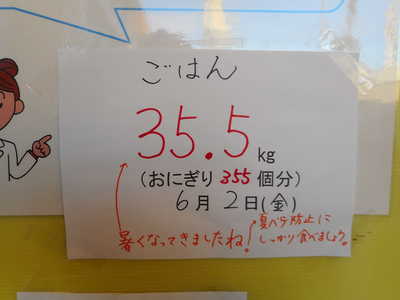 ごはん
35.5 kg
(おにぎり 355 個分)
6月 2日(金)
暑くなってきましたね!
夏バテ防止に
しっかり食べましょう。